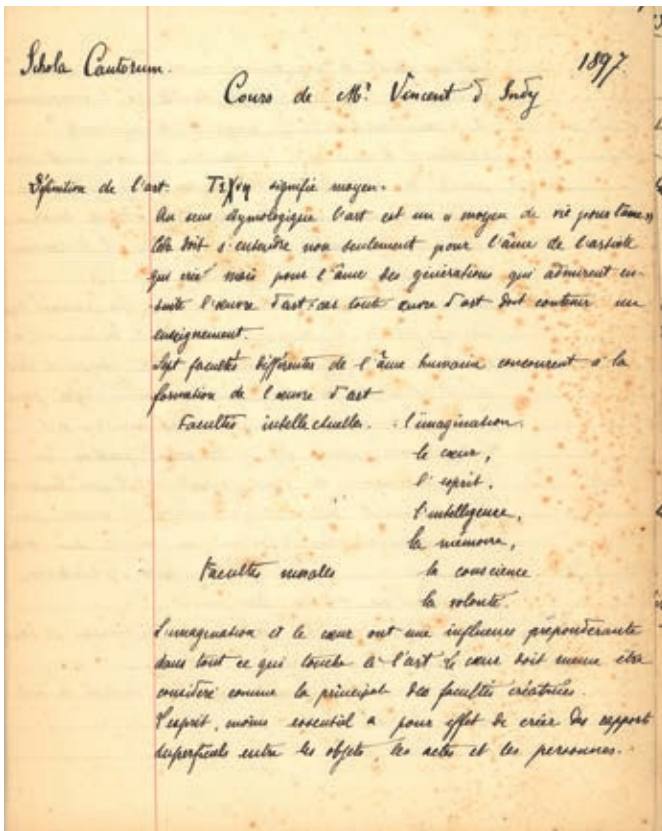 Schola Cantorum. 1897
Cours de Mr. Vincent d Indy
Définition de l'art. Τεχνη signifie moyen.
Au sens étymologique l'art est un « moyen de vie pour l'âme »
Cela doit s'entendre non seulement pour l'âme de l'artiste
qui crée mais pour l'âme des générations qui admirent en-
suite l'œuvre d'art: car tout œuvre d'art doit contenir un
enseignement.
Sept facultés différentes de l'âme humaine concourent à la
formation de l'œuvre d'art
Facultés intellectuelles. l'imagination.
le cœur,
l'esprit,
l'intelligence,
la mémoire,
Facultés morales la conscience
la volonté.
L'imagination et le cœur ont une influence prépondérante
dans tout ce qui touche à l'art le cœur doit même être
considéré comme la principale des facultés créatrices.
L'esprit, moins essentiel a pour effet de créer des rapport
superficiels entre les objets, les actes et les personnes.